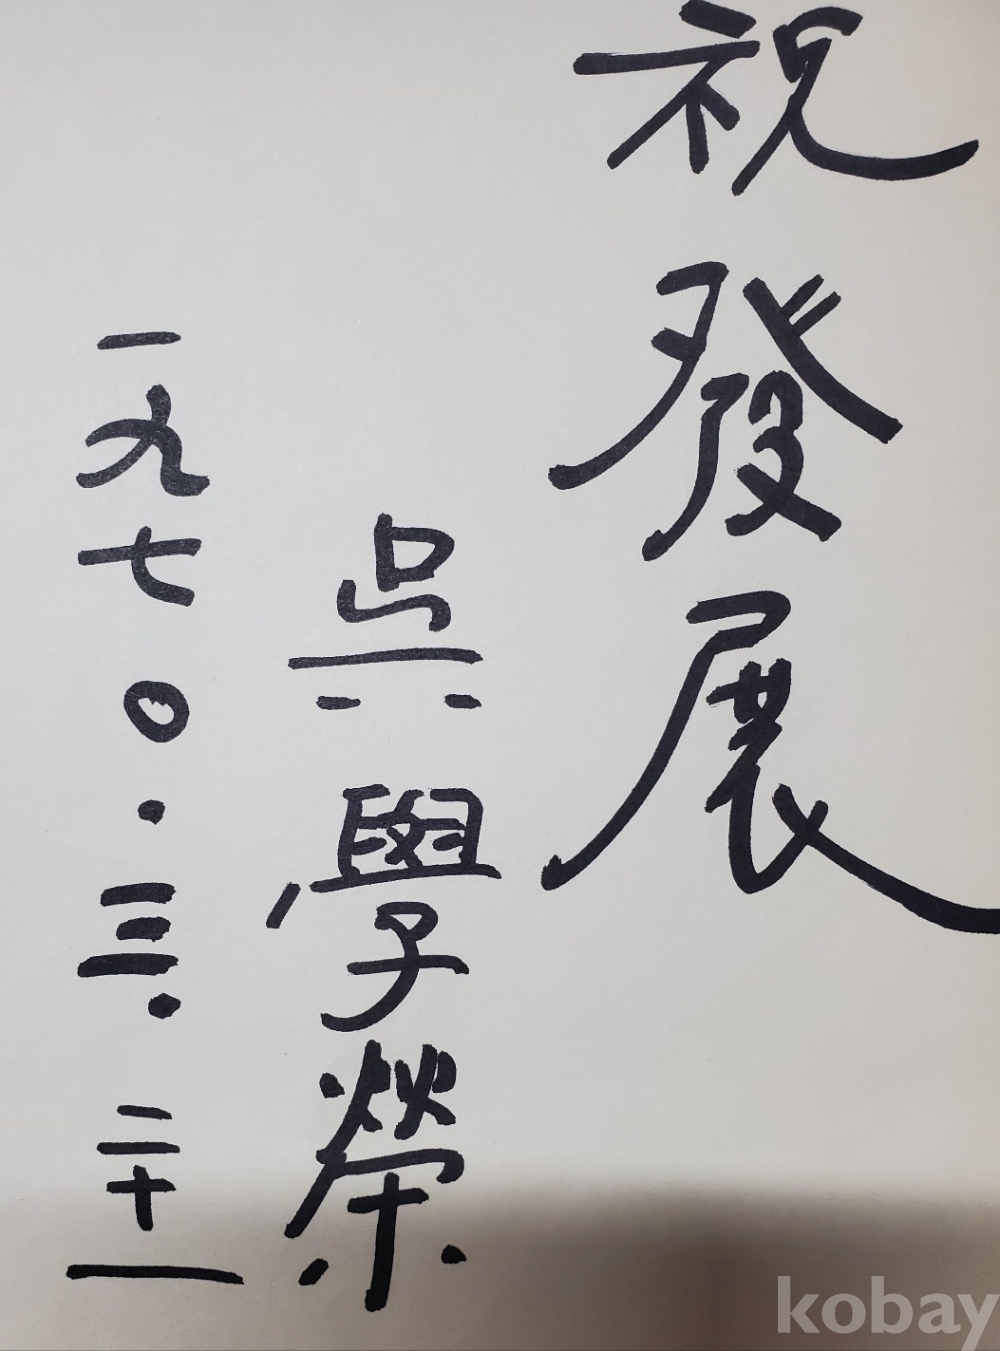 祝發展
吳學榮
一九七〇.三.二十一
kobay